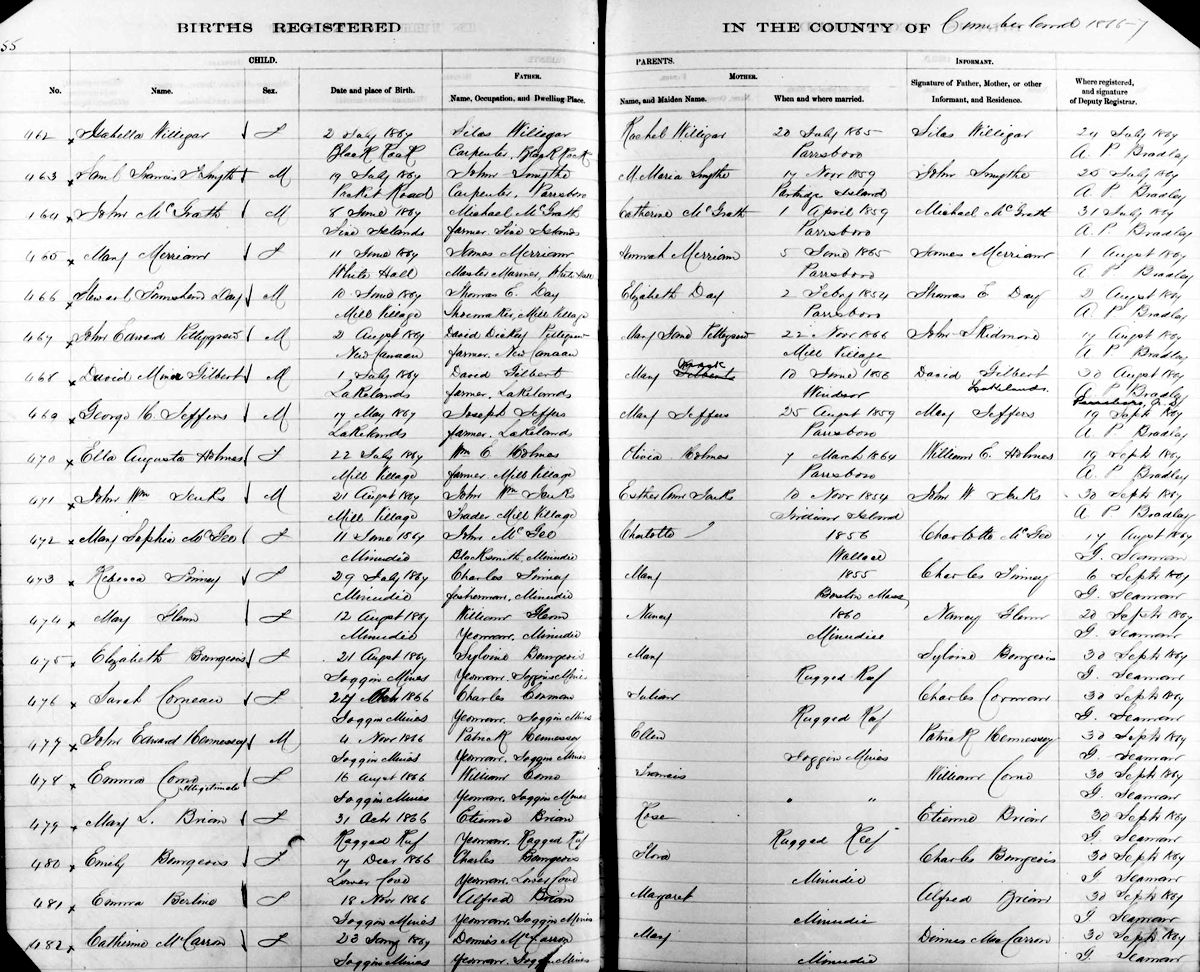 BIRTHS REGISTERED IN THE COUNTY OF Cumberland 1866-7
55
CHILD. PARENTS. INFORMANT.
FATHER. MOTHER.
No. Name. Sex. Date and place of Birth. Name, Occupation, and Dwelling Place. Name, and Maiden Name. When and where married. Signature of Father, Mother, or other Informant, and Residence. Where registered, and signature of Deputy Registrar.
462 Isabella Willigar F 2 July 1867 Silas Willigar Rachel Willigar 20 July 1865 Silas Willigar 24 July 1867
Black Rock Carpenter, Black Rock Parrsboro A. P. Bradley
463 Saml Francis Smyth M 19 July 1867 John Smythe M. Maria Smythe 17 Novr 1859 John Smythe 25 July 1867
Road Carpenter, Parrsboro Partridge Island A P Bradley
464 John McGrath M 8 June 1867 Michael McGrath Catherine McGrath 1 April 1859 Michael McGrath 31 July 1867
Five Islands farmer, Five Islands Parrsboro A. P. Bradley
465 Mary Merriam F 11 June 1867 James Merriam Hannah Merriam 5 June 1865 James Merriam 1 August 1867
White Hall Master Mariner, White Hall Parrsboro A P Bradley
466 Stewart Townshend Day M 10 June 1867 Thomas E. Day Elizabeth Day 2 Feby 1854 Thomas E Day 2 August 1867
Mill Village Shoemaker, Mill Village Parrsboro A P. Bradley
467 John Edward Pettygrew M 2 August 1867 David Dickey Pettigrew Mary Jane Pettigrew 22 Novr 1866 John Skidmore 17 August 1867
New Canaan farmer, New Canaan Mill Village A P Bradley
468 David Gilbert M 1 July 1867 David Gilbert Mary Gilbert 10 June 1856 David Gilbert 30 August 1867
Lakelands farmer, Lakelands Windsor Lakelands. A P Bradley
Parrsboro, N.S
469 George H. Jeffers M 17 May 1867 Joseph Jeffers Mary Jeffers 25 August 1859 Mary Jeffers 19 Septr 1867
Lakelands farmer, Lakelands Parrsboro A. P. Bradley
470 Ella Augusta Holmes F 22 July 1867 Wm E Holmes Olivia Holmes 7 March 1864 William E. Holmes 19 Septr 1867
Mill Village farmer, Mill Village Parrsboro A. P. Bradley
471 John Wm Jenks M 21 August 1867 John Wm Jenks Esther Ann Jenks 10 Novr 1854 John W Jenks 30 Septr 1867
Mill Village Trader, Mill Village Indian Island A P Bradley
472 Mary Sophia McGeo F 11 June 1867 John McGeo Charlotte ? 1856 Charlotte McGeo 17 August 1867
Minudie Blacksmith, Minudie Wallace G. Seaman
473 Rebecca Finney F 29 July 1867 Charles Finney Mary 1855 Charles Finney 6 Septr 1867
Minudie fisherman, Minudie Boston Mass, G. Seaman
474 Mary Glenn F 12 August 1867 William Glenn Nancy 1860 Nancy Glenn 20 Septr 1867
Minudie Yeoman, Minudie Minudie G. Seaman
475 Elizabeth Bourgeois F 21 August 1867 Sylvine Bourgeois Mary Sylvine Bourgeois 30 Septr 1867
Joggin Mines Yeoman, Joggin Mines Rugged Reef G. Seaman
476 Sarah Corneau F 24 Octr 1866 Charles Corman Julian Charles Corman 30 Septr 1867
Joggin Mines Yeoman, Joggin Mines Rugged Reef G. Seaman
477 John Edward Hennessey M 4 Novr 1866 Patrick Hennessey Ellen Patrick Hennessey 30 Septr 1867
Joggin Mines Yeoman, Joggin Mines Joggin Mines G. Seaman
478 Emma Como F 16 August 1866 William Como Francis William Como 30 Septr 1867
Illegitimate Joggin Mines Yeoman, Joggin Mines " " G. Seaman
479 Mary L. Brian F 31 Octr 1866 Etienne Brian Rose Etienne Brian 30 Septr 1867
Ragged Reef Yeoman, Ragged Reef Rugged Reef G Seaman
480 Emily Bourgeois F 17 Decr 1866 Charles Bourgeois Flora Charles Bourgeois 30 Septr 1867
Lower Cove Yeoman, Lower Cove Minudie G. Seaman
481 Emma Berline F 18 Novr 1866 Alfred Brian Margaret Alfred Brian 30 Septr 1867
Joggin Mines Yeoman, Joggin Mines Minudie G Seaman
482 Catherine McCarron F 23 Jany 1867 Dennis McCarron Mary Dennis MacCarron 30 Septr 1867
Joggin Mines Yeoman, Joggin Mines Minudie G Seaman